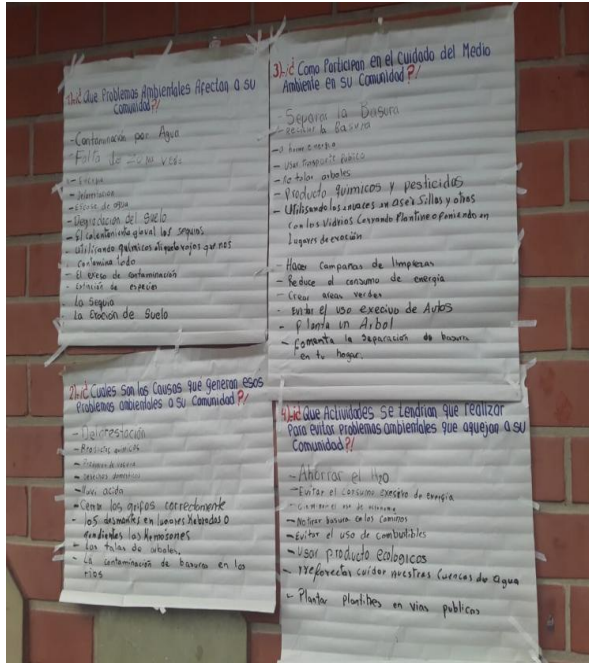 1).-¿ Que Problemas Ambientales Afectan a su
Comunidad?/
- Contaminación por Agua
- Falta de
- 
- Deforestación
- Escase de agua
- Degradación del Suelo
- El calentamiento glaval los sequias
- utilizando químicos etiqueta rojos que nos
contamina todo
- El exeso de contaminación
- Extinción de especies
- La Sequia
- La Eroción de Suelo
2).-¿ Cuales son las Causas que generan esos
Problemas ambientales a su Comunidad?/
- Deforestación
- químicos
- de basura
- domesticos
- lluvi acida
- Cerrar los grifos correctamente
- los desmontes en lugares o
pendientes las
- Las talas de arboles.
- La contaminación de basuras en los
rios
3).-¿ Como Participan en el Cuidado del Medio
Ambiente en su Comunidad?/
- Separar la Basura
- Reciclar la Basura
- energia
- Usar transporte Publico
- No talar arboles
- Producto químicos y pesticidas
- Utilisando los envaces en aser Sillas y otros
con los Vidrios Cerrando Plantine o poniendo en
lugares de eroción
- Hacer Campañas de limpiezas
- Reduce el consumo de energia
- Crear areas verdes
- Evitar el uso execivo de Autos
- Planta un Arbol
- Fomenta la Separación de basura
en tu hogar.
4).-¿ Que Actividades Se tendrian que realizar
Para evitar problemas ambientales que aquejan a su
Comunidad?/
- Ahorrar el H2O
- Evitar el Consumo exesivo de energia
- el uso de
- No tirar basura en los Caminos
- Evitar el uso de combutibles
- Usar producto ecologicos
- cuidar nuestras Cuencas de agua
- Plantar plantines en vias publicas